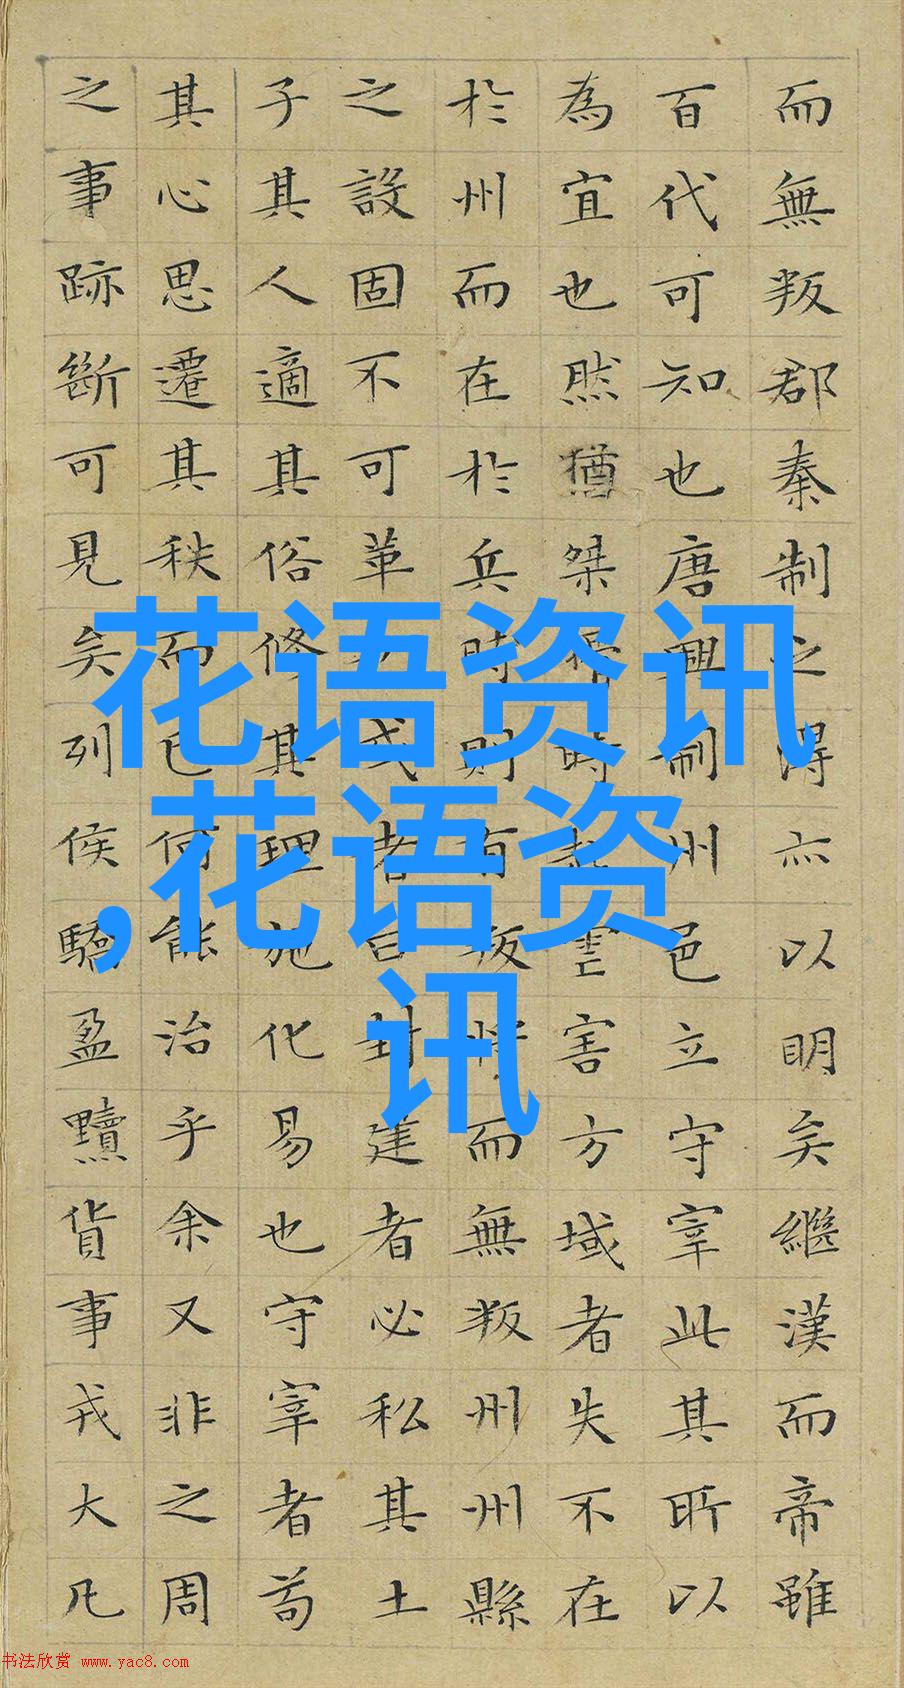 而無叛郡秦制之得亦以明矣繼漢而帝雖
百代可知也唐興制州邑立守宰此其所以
為宜也然猶桀猾時起虐害方域者失不在
於州而在於兵時則有叛將而無叛州州縣
之設固不可革也或者曰封建者必私其土
子其人適其俗修其理施化易也守宰者苟
其心思遷其秩而已何能治乎余又非之周
之事跡斷可見矣列侯驕盈黷貨事戎大凡
花语资讯
,花语资
讯
书法欣赏 www.yac8.com